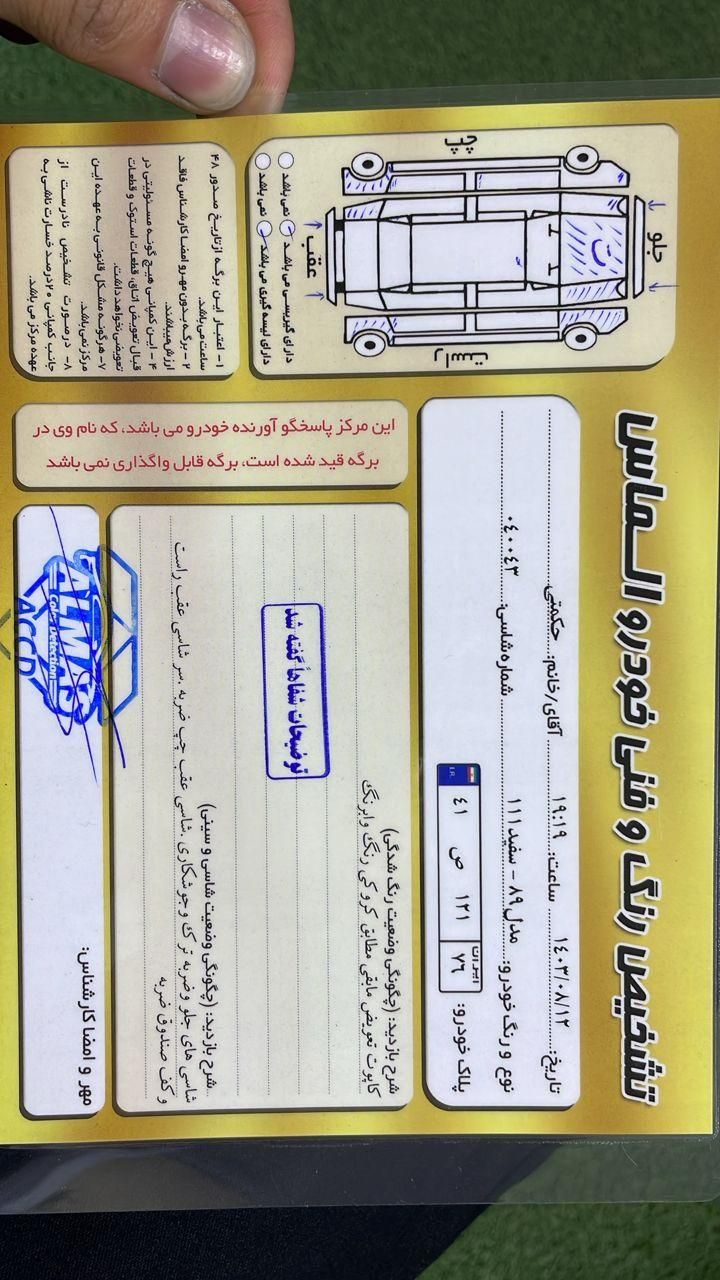 تشخیص رنگ و فنی خودرو الـماس
تاریخ: ۱۴۰۳/۰۸/۱۲ ساعت: ۱۹:۱۹ آقای/خانم: حکمتی
نوع و رنگ خودرو: مدل ۸۹ - سفید ۱۱۱ شماره شاسی: ۰۴۰۰۴۳
پلاک خودرو: ۴۱ ص ۱۲۱ ایران ۷۶
I.R.
شرح بازدید: (چگونگی وضعیت رنگ شدگی)
کاپوت تعویض مابقی مطابق کروکی رنگ وابرنگ
توضیحات شفاهاً گفته شد
شرح بازدید: (چگونگی وضعیت شاسی و سینی)
شاسی های جلو وضربه ترک وجوشکاری .شاسی عقب چپ ضربه .سر شاسی عقب راست
و کف صندوق ضربه
مهر و امضا کارشناس:
ALMAS
Color Detection
ACCD
جلو
چپ
راست
عقب
ت
دارای گیربسی می باشد نمی باشد
دارای لیسه گیری می باشد نمی باشد
۱- اعتبار این برگه از تاریخ صدور ۴۸
ساعت می باشد.
۲- برگه بدون مهر و امضا کارشناس فاقد
ارزش میباشد.
۴- این کمپانی هیچ گونه مسئولیتی در
قبال تعویض اتاق، قطعات استوک و قطعات
تعویضی نخواهد داشت.
۷- هرگونه مشکل قانونی به عهده این
مرکز نمی باشد.
۸- درصورت تشخیص نادرست از
جانب کمپانی ۲۰درصد خسارت ناشی به
عهده مرکز می باشد.
این مرکز پاسخگو آورنده خودرو می باشد، که نام وی در
برگه قید شده است، برگه قابل واگذاری نمی باشد